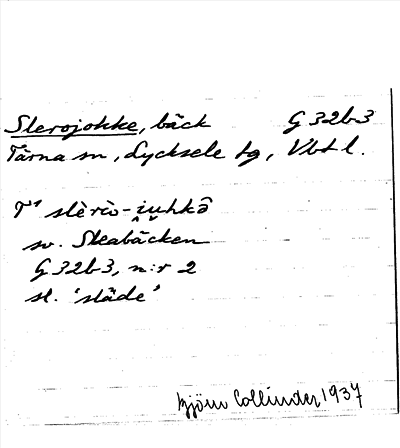 Slerojokke, bäck G 32b3
Tärna sn, Lycksele tg, Vbt l.
slèrò-
sv. Sleabäcken
G 32b3, n:r 2
sl. 'släde'
Björn Collinder 1937